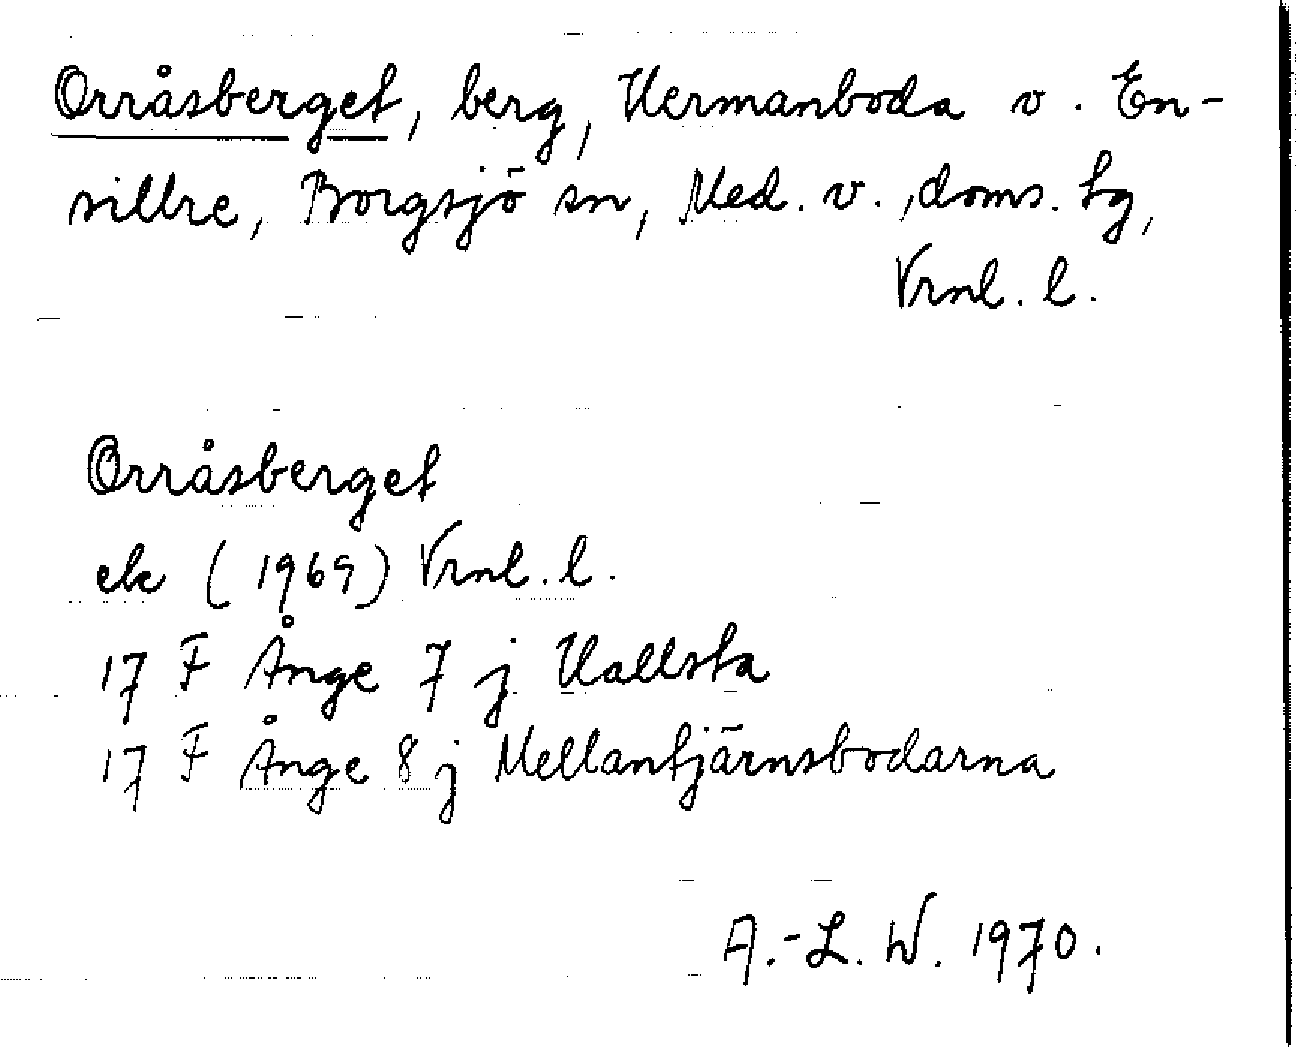 Orråsberget, berg, Hermanboda v. En-
sillre, Borgsjö sn, Med. v., doms. hg,
Vrnl. l.
Orråsberget
ek (1969) Vrnl. l.
17 F Ånge 7 j Hallsta
17 F Ånge 8 j Mellantjärnsbodarna
A.-L. W. 1970.